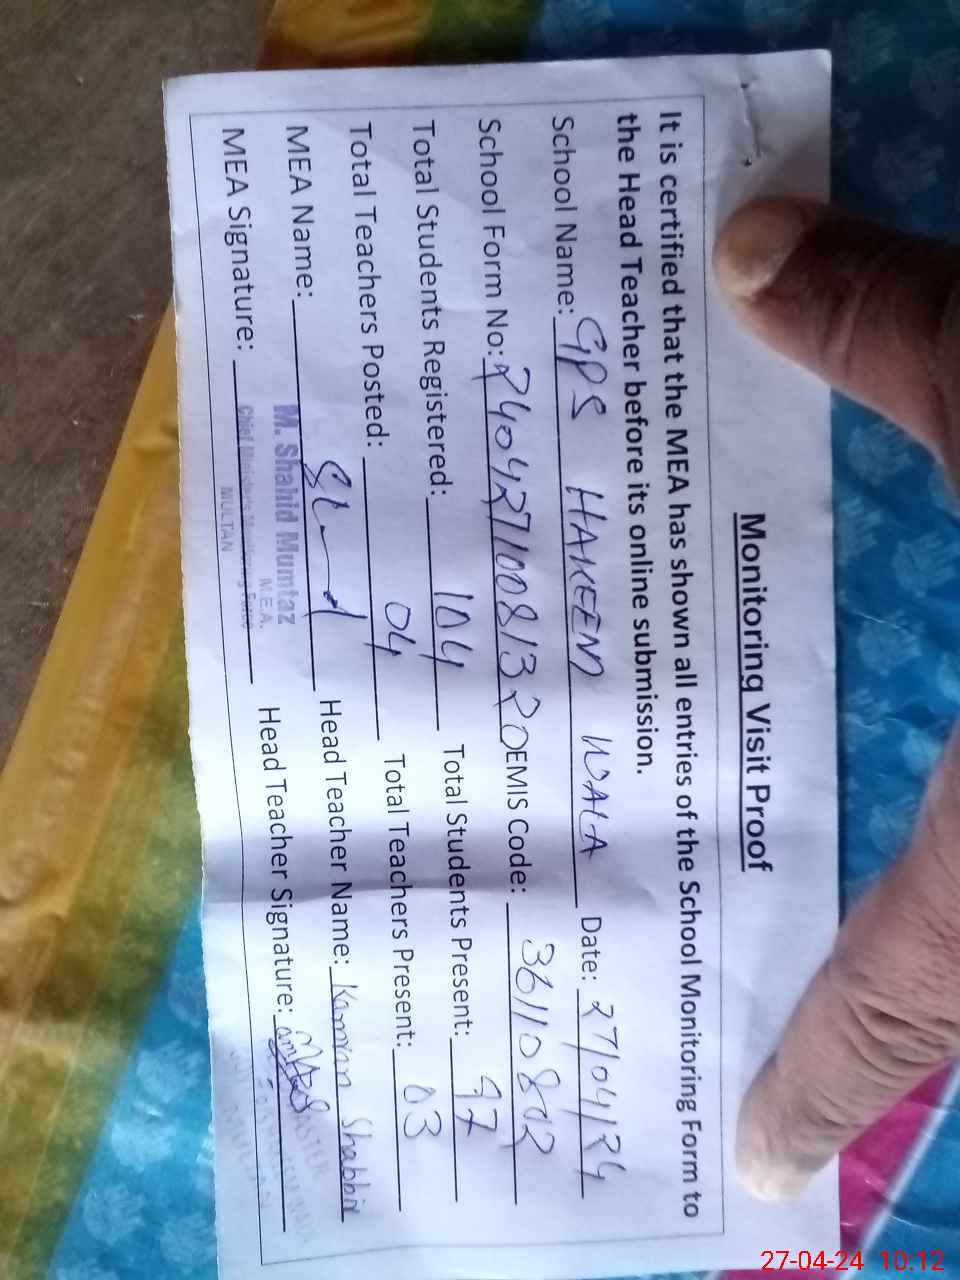 Monitoring Visit Proof
It is certified that the MEA has shown all entries of the School Monitoring Form to
the Head Teacher before its online submission.
School Name: GPS HAKEEM WALA Date: 27/04/24
School Form No: 24042710081320 EMIS Code: 36110802
Total Students Registered: 104 Total Students Present: 97
Total Teachers Posted: 04 Total Teachers Present: 03
MEA Name: Head Teacher Name: Kamran Shabbir
M. Shahid Mumtaz
M.E.A.
MEA Signature: Head Teacher Signature:
Chief Minister's Monitoring Force
MULTAN
27-04-24 10:12